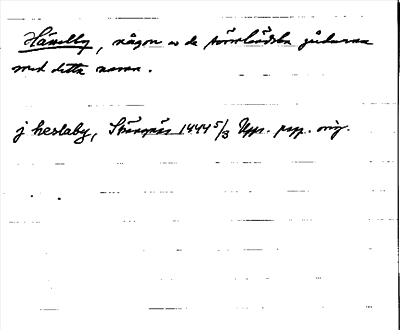 Hässelby, någon av de sörmländska gårdarna
med detta namn.
j heslaby, Strängnäs 1444 5/3 Upps. papp. orig.